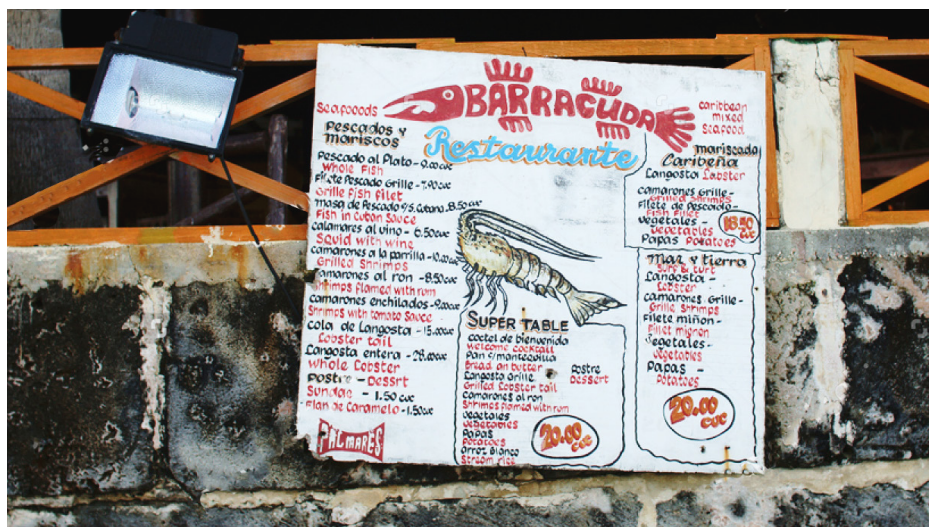 BARRACUDA
Restaurante
Seafoods
Pescados y
mariscos
Pescado al Plato - 9.00cuc
Whole Fish
Filete Pescado Grille - 7.90cuc
Grille fish filet
masa de Pescado %S. Cubano - 8.50cuc
Fish in Cuban Sauce
calamares al vino - 6.50cuc
Squid with wine
camarones a la parrilla - 10.00cuc
Grilled Shrimps
camarones al ron - 8.50cuc
Shrimps flamed with rum
camarones enchilados - 9.00cuc
Shrimps with tomato Sauce
cola de Langosta - 15.00cuc
Lobster tail
Langosta entera - 28.00cuc
Whole Lobster
Postre - Dessrt
Sundae - 1.50 cuc
Flan de Caramelo - 1.50cuc
PALMARES
SUPER TABLE
coctel de bienvenida
welcome cocktail
Pan c/mantequilla
Bread an butter
Langosta Grille
Grilled Lobster tail
camarones al ron
Shrimps flamed with rum
vegetales
vegetables
Papas
Potatoes
Arroz blanco
Stream rice
Postre
Dessert
20.00
cuc
caribbean
mixed
Seafood
mariscada
Caribeña
Langosta Lobster
camarones Grille -
Grilled Shrimps
Filete de Pescado -
Fish Fillet
vegetales -
vegetables
Papas Potatoes
18.50
cuc
Mar y tierra
Surf & turf
Langosta -
Lobster
camarones Grille -
Grille Shrimps
Filete miñon -
Fillet mignon
Vegetales -
Vegetables
Papas -
Potatoes
20.00
cuc